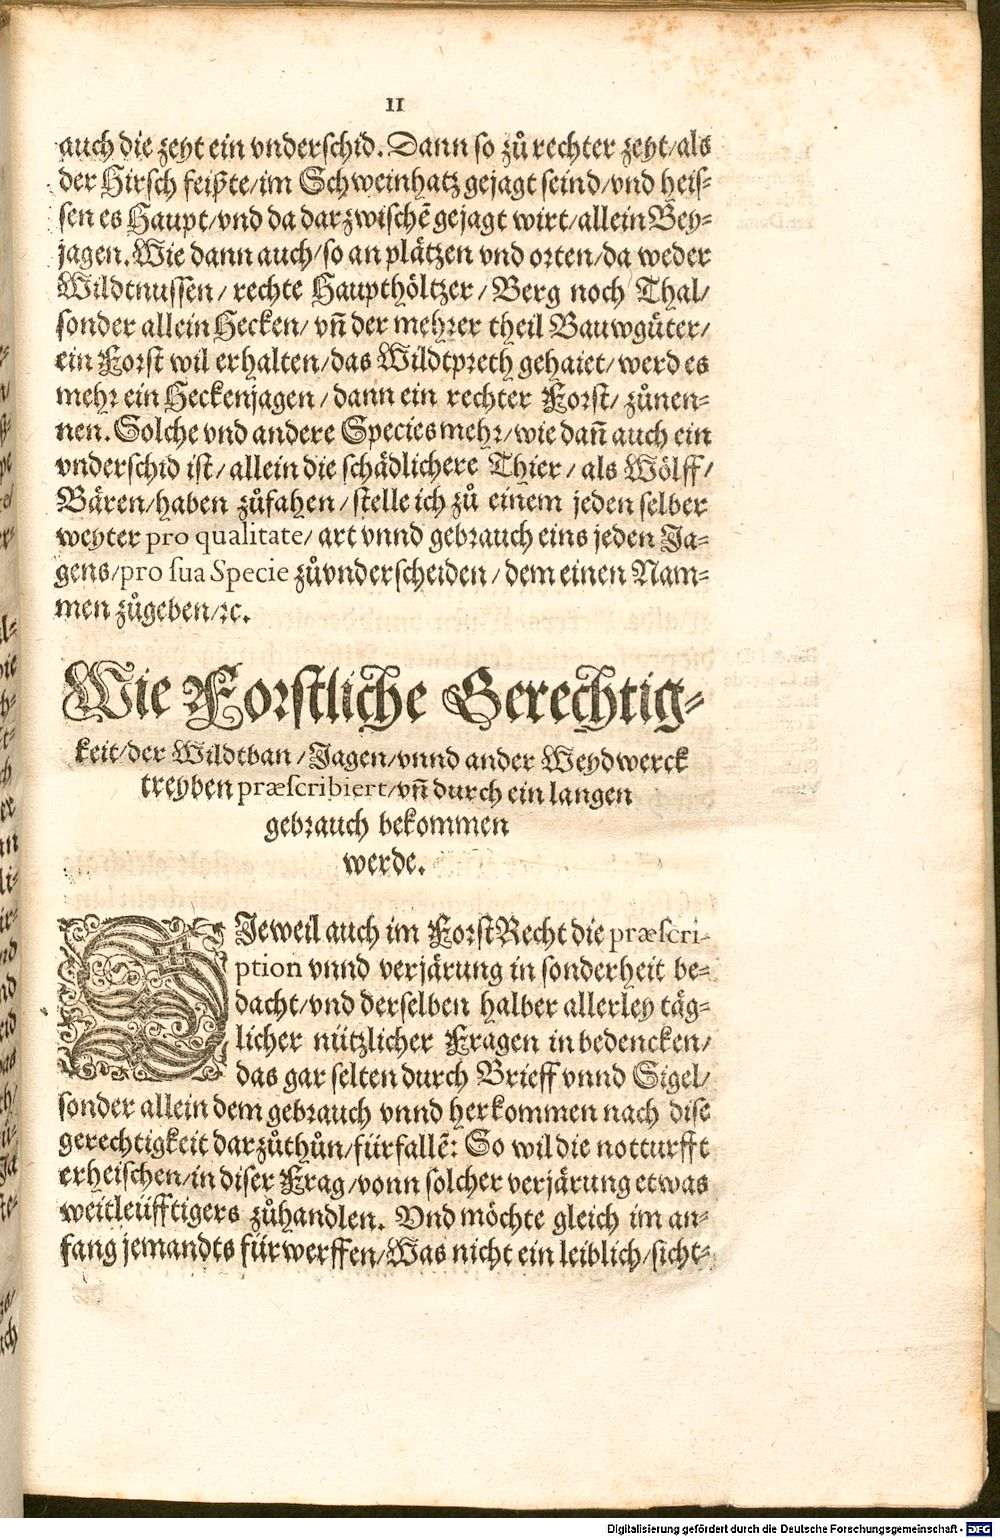 11
auch die zeyt ein vnderschid. Dann so zů rechter zeyt/als
der Hirsch feißte/im Schweinhatz gejagt seind/vnd heis-
sen es Haupt/vnd da darzwischẽ gejagt wirt/allein Bey-
jagen. Wie dann auch/so an plätzen vnd orten/da weder
Wildtnussen/ rechte Haupthöltzer/ Berg noch Thal/
sonder allein Hecken/ vñ der mehrer theil Bauwgüter/
ein Forst wil erhalten/das Wildtpreth gehaiet/werd es
mehr ein Heckenjagen/dann ein rechter Forst/ zůnen-
nen. Solche vnd andere Species mehr/wie dañ auch ein
vnderschid ist/allein die schädlichere Thier/ als Wölff/
Bären/haben zůfahen/ stelle ich zů einem jeden selber
weyter pro qualitate/ art vnnd gebrauch eins jeden Ja-
gens/pro sua Specie zůvnderscheiden/dem einen Nam-
men zůgeben/ꝛc.
Wie Forstliche Gerechtig-
keit/der Wildtban/Jagen/vnnd ander Weydwerck
treyben præscribiert/vñ durch ein langen
gebrauch bekommen
werde.
DJeweil auch im ForstRecht die præscri-
ption vnnd verjärung in sonderheit be-
dacht/vnd derselben halber allerley täg-
licher nützlicher Fragen in bedencken/
das gar selten durch Brieff vnnd Sigel/
sonder allein dem gebrauch vnnd herkommen nach dise
gerechtigkeit darzůthůn/fürfallẽ: So wil die notturfft
erheischen/in diser Frag/vonn solcher verjärung etwas
weitleüfftigers zůhandlen. Vnd möchte gleich im an-
fang jemandts fürwerffen/Was nicht ein leiblich/sicht-
Digitalisierung gefördert durch die Deutsche Forschungsgemeinschaft - DFG